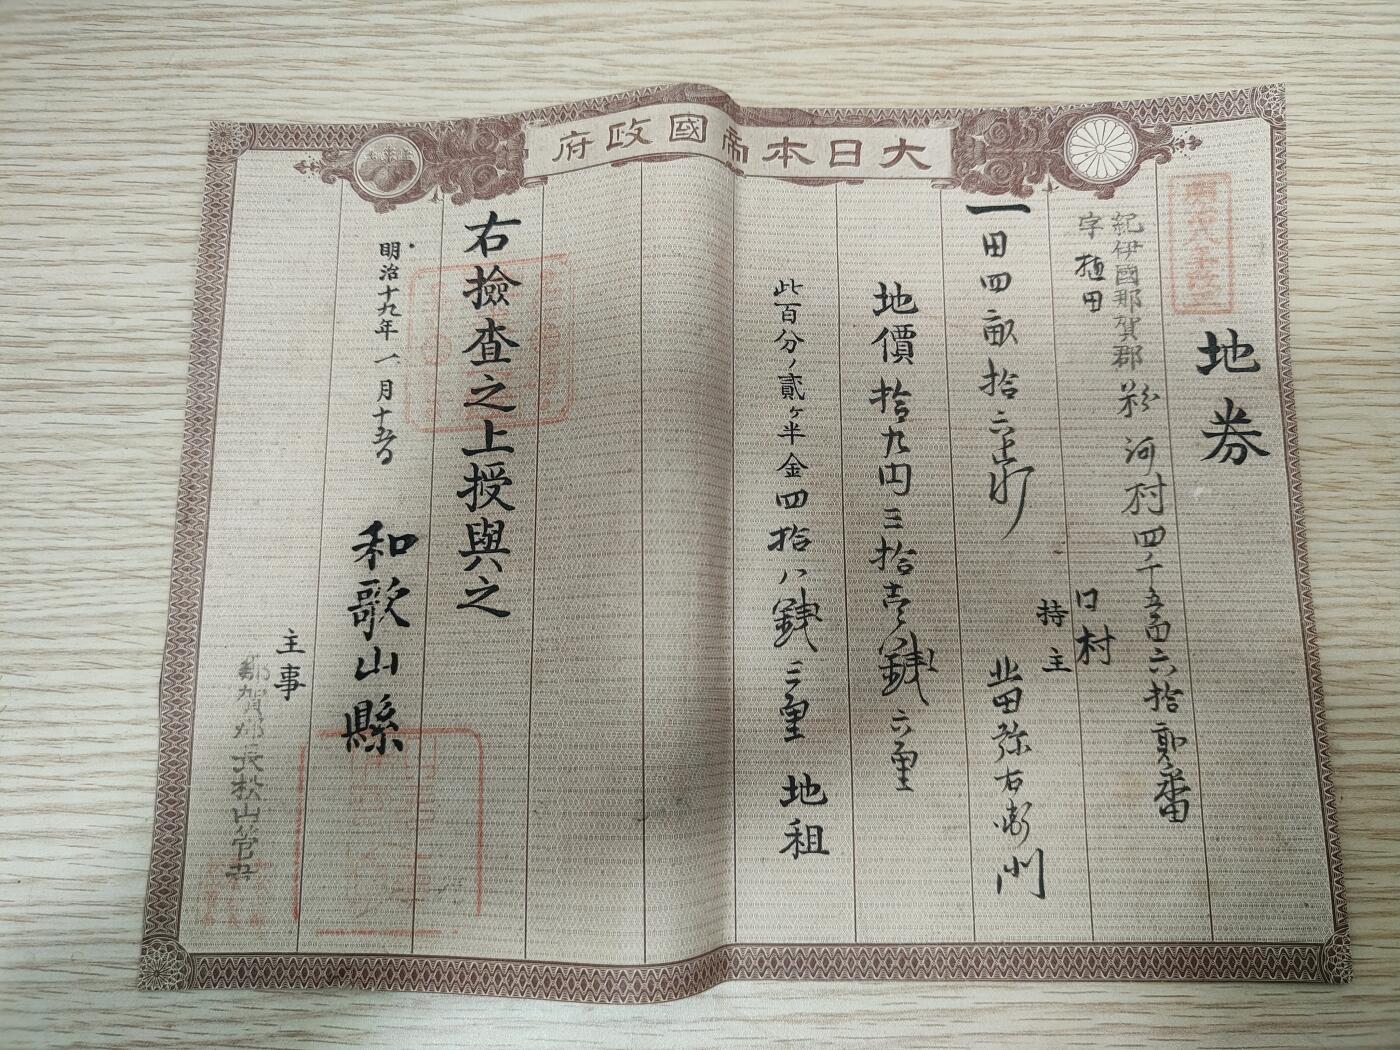 大日本帝國政府
地券
紀伊國那賀郡粉河村四千五百六拾貳番
字植田
同村
持主
一田四畝拾六歩
北田弥右衛門
地價拾九円三拾壱銭六厘
此百分ノ貳ヶ半金四拾八銭三厘 地租
右檢査之上授與之
明治十九年一月十五日
和歌山縣
主事
那賀郡長松山管吾